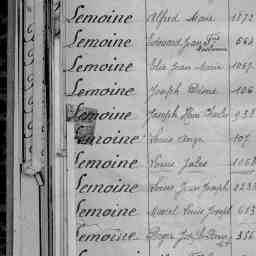 Lemoine Alfred Marie 1872
Lemoine Edouard Jean
Lemoine Elie Jean Marie
Lemoine Joseph Désiré 106
Lemoine Joseph Henri Charles 938
Lemoine Louis 107
Lemoine Louis Jules 1068
Lemoine Louis Jean Joseph
Lemoine Marcel Louis Joseph 613
Lemoine Roger 356